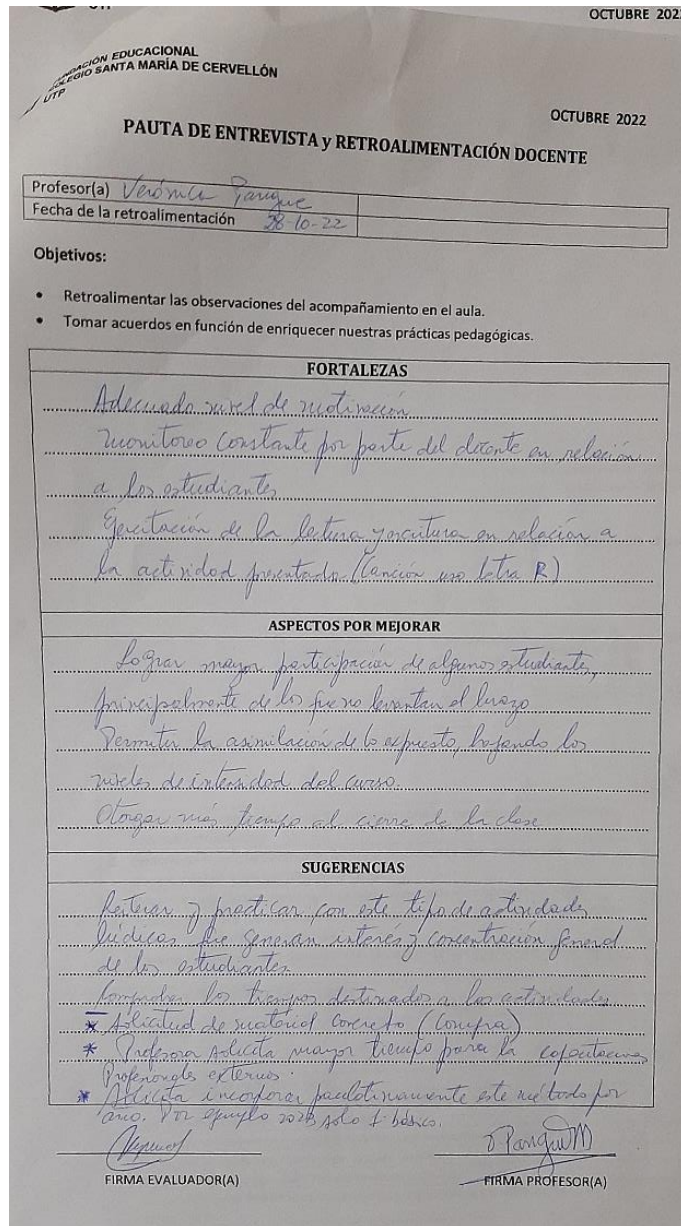 OCTUBRE 202
FUNDACIÓN EDUCACIONAL
COLEGIO SANTA MARÍA DE CERVELLÓN
UTP
OCTUBRE 2022
PAUTA DE ENTREVISTA y RETROALIMENTACIÓN DOCENTE
Profesor(a) Verónica Pangue
Fecha de la retroalimentación 28-10-22
Objetivos:
• Retroalimentar las observaciones del acompañamiento en el aula.
• Tomar acuerdos en función de enriquecer nuestras prácticas pedagógicas.
FORTALEZAS
Adecuado nivel de motivación
Monitoreo constante por parte del docente en relación
a los estudiantes
Ejercitación de la lectura y escritura en relación a
la actividad presentada (Canción uso letra R)
ASPECTOS POR MEJORAR
Lograr mayor participación de algunos estudiantes,
principalmente de los que no levantan el brazo
Permitir la asimilación de lo expuesto, bajando los
niveles de intensidad del curso.
Otorgar más tiempo al cierre de la clase
SUGERENCIAS
Reiterar y practicar con este tipo de actividades
lúdicas que generan interés y concentración general
de los estudiantes
Comprobar los tiempos destinados a las actividades
* Solicitud de material concreto (Compra)
* Profesora solicita mayor tiempo para la capacitaciones
Profesionales externos.
* Solicita incorporar paulatinamente este método por
año. Por ejemplo 2023 solo 1° básico.
V. Pangue M
FIRMA EVALUADOR(A)
FIRMA PROFESOR(A)